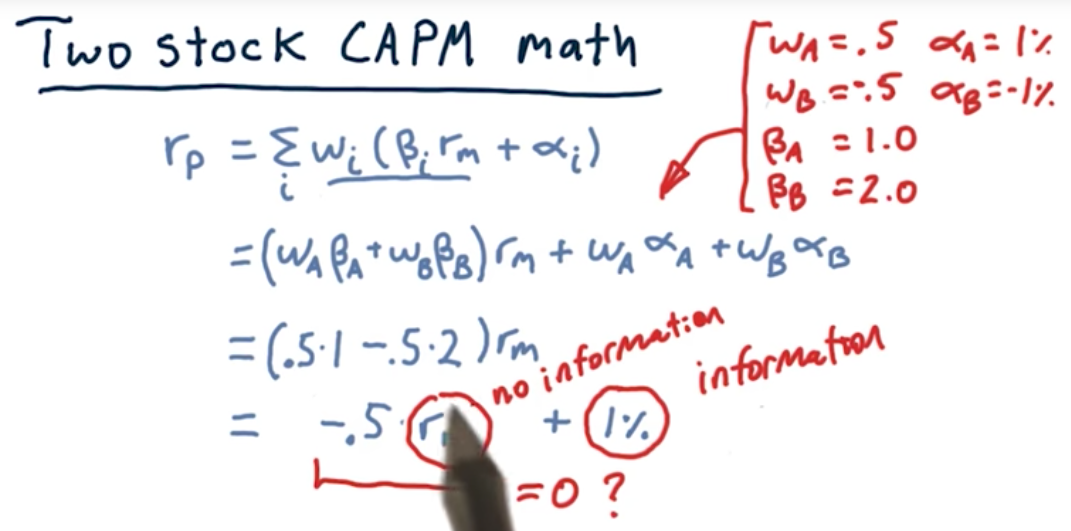 Two stock CAPM math
wA = .5 αA = 1%
wB = -.5 αB = -1%
βA = 1.0
βB = 2.0
rp = Σi wi (βi rm + αi)
= (wA βA + wB βB) rm + wA αA + wB αB
= (.5·1 - .5·2) rm
no information
information
= -.5· r + 1%
= 0 ?